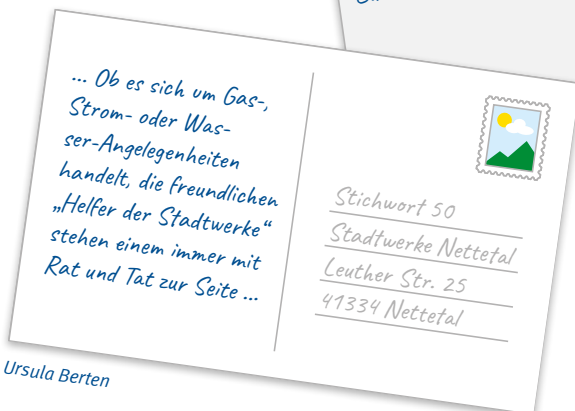 ... Ob es sich um Gas-,
Strom- oder Was-
ser-Angelegenheiten
handelt, die freundlichen
„Helfer der Stadtwerke“
stehen einem immer mit
Rat und Tat zur Seite ...
Stichwort 50
Stadtwerke Nettetal
Leuther Str. 25
41334 Nettetal
Ursula Berten